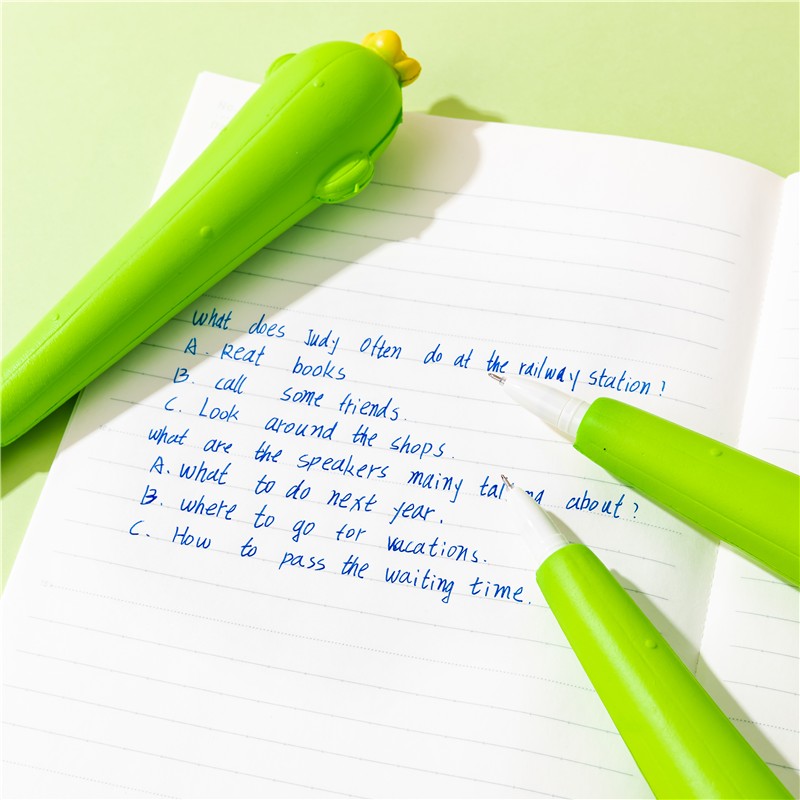 what does Judy Often do at the railway station?
A. Reat books
B. call some friends.
C. Look around the shops.
what are the speakers mainy about?
A. what to do next year.
B. where to go for vacations.
C. How to pass the waiting time.